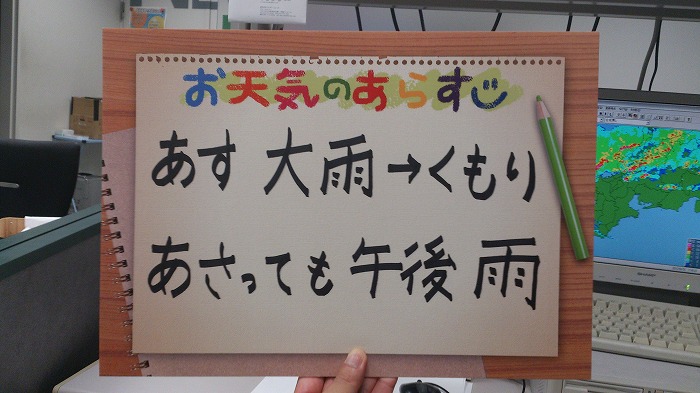 お天気のあらすじ
あす 大雨→くもり
あさっても 午後 雨
SHARP